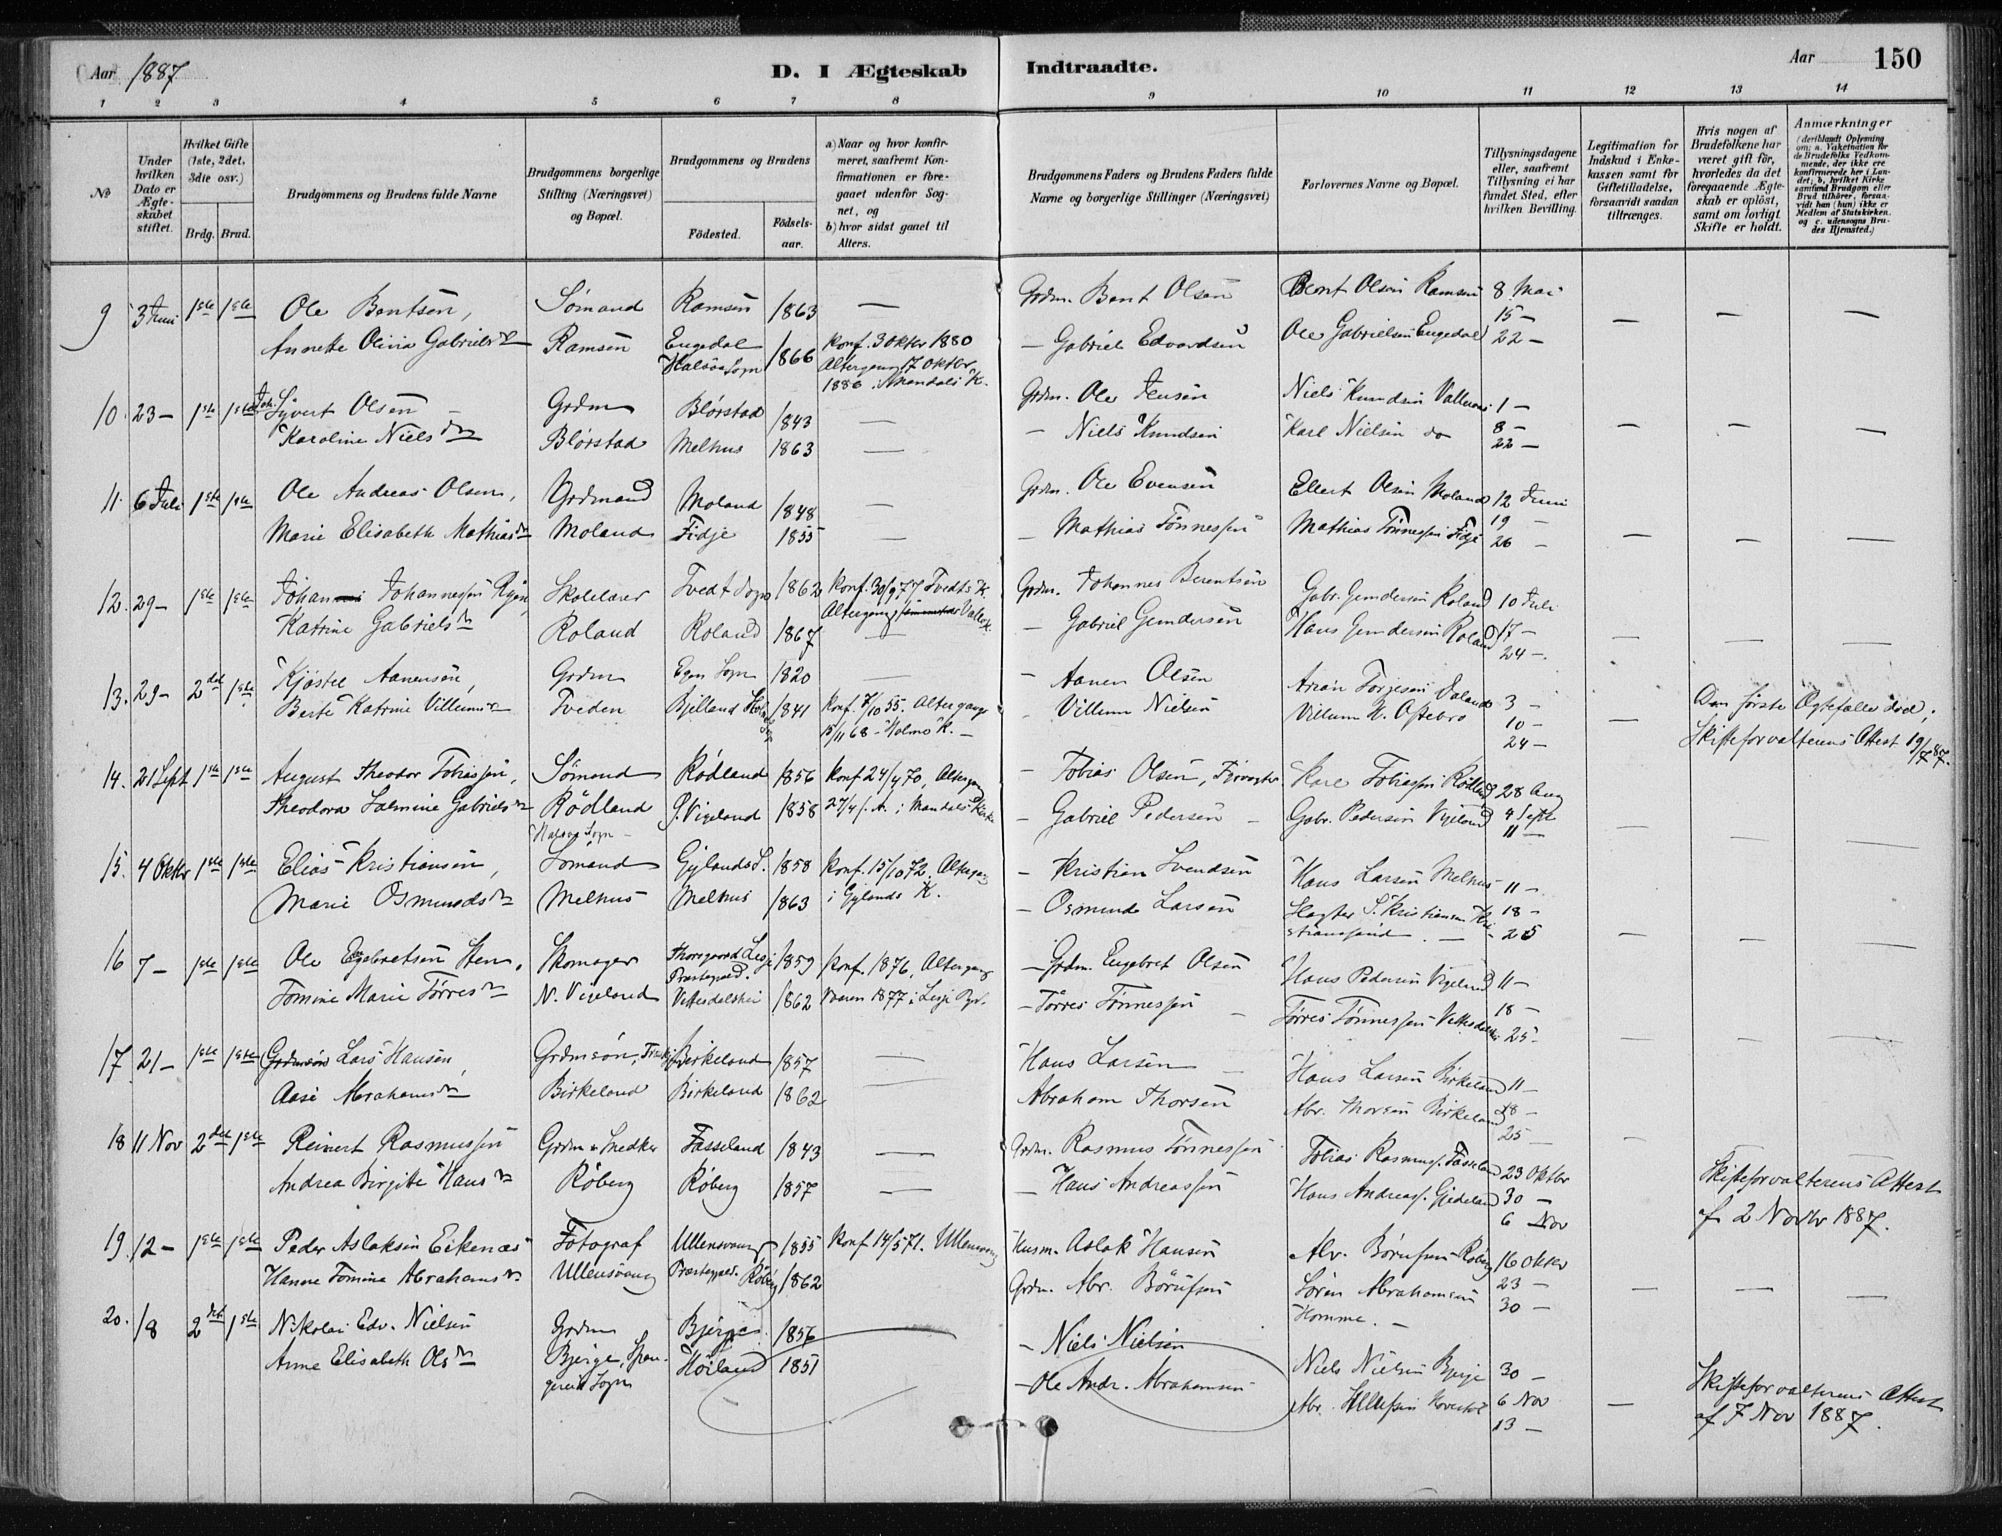 Aar 1887
D. I Ægteskab Indtraadte.
Aar 150
1 2 3 4 5 6 7 8 9 10 11 12 13 14
No
Under hvilken Dato er Ægteskabet stiftet.
Hvilket Gifte (1ste, 2det, 3die osv.)
Brdg. Brud.
Brudgommens og Brudens fulde Navne
Brudgommens borgerlige Stilling (Næringsvei) og Bopæl.
Brudgommens og Brudens
Födested. Födselsaar.
a) Naar og hvor konfirmeret, saafremt Konfirmationen er foregaaet udenfor Sognet, og
b) hvor sidst gaaet til Alters.
Brudgommens Faders og Brudens Faders fulde Navne og borgerlige Stillinger (Næringsvei)
Forlovernes Navne og Bopæl.
Tillysningsdagene eller, saafremt Tillysning ei har fundet Sted, efter hvilken Bevilling.
Legitimation for Indskud i Enkekassen samt for Giftetilladelse, forsaavidt saadan tiltrænges.
Hvis nogen af Brudefolkene har været gift för, hvorledes da det foregaaende Ægteskab er oplöst, samt om lovligt Skifte er holdt.
Anmærkninger (deriblandt Oplysning om: a. Vakcination for de Brudefolks Vedkommende, der ikke ere konfirmerede her i Landet; b. hvilket Kirkesamfund Brudgom eller Brud tilhörer, forsaavidt han (hun) ikke er Medlem af Statskirken, og c. udensogns Brudes Hjemsted.)
9 3 Juni 1ste 1ste Ole Bentsen, Sömand Ramsen 1863 — Grdm. Bent Olsen Bernt Olsen Ramsen 8 Mai
15 —
Annette Olivia Gabrielsdr Ramsen Engedal Halsaa Sogn 1866 Konf. 3 Oktbr 1880 — Gabriel Edvardsen Ole Gabrielsen Engedal 22 —
Altergang 17 Oktbr 1886 i Mandals K.
10. 23 — 1ste 1ste Joh. Syvert Olsen Grdm Blörstad 1843 — Grdm. Ole Jensen Niels Knudsen 1 —
Karoline Nielsdr Blörstad Melhus 1863 — — Niels Knudsen Karl Nielsen do 8 —
22 —
11. 6 Juli 1ste 1ste Ole Andreas Olsen, Grdmand Moland 1848 — Grdm. Ole Evensen Ellert Olsen Moland 12 Juni
Marie Elisabeth Mathiasdr Moland Fidje 1855 — — Mathias Tönnessen Mathias Tönnessen Fidje 19 —
26 —
12. 29 — 1ste 1ste Johan Johannessen Skolelærer Tvedt Sogn 1862 Konf. 30/9 77 Tvedts K. Grdm. Johannes Berentsen Gabr. Gundersen Roland 10 Juli
Katrine Gabrielsdr Roland Roland 1867 Altergang — Gabriel Gundersen Hans Gundersen Roland 17 —
24 —
13. 29 — 2det 1ste Kjöstel Aanensen, Grdm Egen Sogn 1820 — — Aanen Olsen 3 —
Berte Katrine Villumsdr Tveden Bjelland 1841 Konf. 7/10 55. Altergang — Villum Nielsen Villum K. Oftebro 10 —
15/11 68 — Holmo K. — 24 —
Den første Ægtefælle död; Skifteforvalterens Attest 19/7 87.
14. 21 Sept 1ste 1ste August Theodor Tobiassen, Sömand Rödland 1856 Konf. 24/4 70, Altergang — Tobias Olsen, Karl Tobiassen Rödland 28 Aug
Theodora Salmine Gabrielsdr Rödland G. Vigeland 1858 27/4 f. A. i Mandals Kirke — Gabriel Pedersen — Gabr. Pedersen Vigeland 4 Septb
Halsaa Sogn — 11 —
15. 4 Oktbr 1ste 1ste Elias Kristiansen, Sömand Gylands S. 1858 Konf. 15/10 72, Altergang — Kristian Svendsen Hans Larsen Melhus 11 —
Marie Osmundsdr Melhus Melhus 1863 i Gylands K. — Osmund Larsen S. Kristiansen Kri- 18 —
stianssand — 25
16 7 — 1ste 1ste Ole Engebretsen Sten, Skomager Lesje Præstegjæld. 1859 Konf. 1876, Altergang — Grdm. Engebret Olsen Hans Pedersen Vigeland 11 —
Tomine Marie Törresdr N. Vigeland 1862 Vaaren 1877 i Lesje — Törres Tönnessen — Törres Tönnessen 18 —
25 —
17. 21 — 1ste 1ste Grdmsön Lars Hansen, Grdmsön, Birkeland 1857 — Hans Larsen — Hans Larsen Birkeland 11 —
Aase Abrahamsdr Birkeland Birkeland 1862 — Abraham Thorsen Abr. Thorsen Birkeland 18 —
25 —
18 11 Nov 2det 1ste Reinert Rasmussen Grdm & Snedker Fasseland 1843 — Grdm. Rasmus Tönnessen Tobias Rasmuss. Fasseland 23 Oktbr
Andrea Birgitte Hansdr Röberg Röberg 1857 — — Hans Andreassen Hans Andreass. 30 —
6 Nov
Skifteforvalterens Attest af 2 Novbr 1887.
19. 12 — 1ste 1ste Peder Aslaksen Eikenæs Fotograf Ullensvang 1855 Konf 14/5 71. Ullensvang Husm. Aslak Hansen Abr. Börufsen Röberg 16 Oktbr
Hanne Tomine Abrahamsdr. Ullensvang Præstegjæld. Röberg 1862 Grdm. Abr. Börufsen Sören Abrahamsen 23 —
Homme. — 30 —
20. 18 2det 1ste Nikolai Edv. Nielsen Grdm Bjerge. 1856 — Niels Nielsen
Anne Elisabeth Olsdr Bjerge, Span- Höiland 1851 — Ole Andr. Abrahamsen Niels Nielsen Bjerge 30 —
gereid Sogn Abr. 6 Nov
13 —
Skifteforvalterens Attest af 7 Nov 1887.